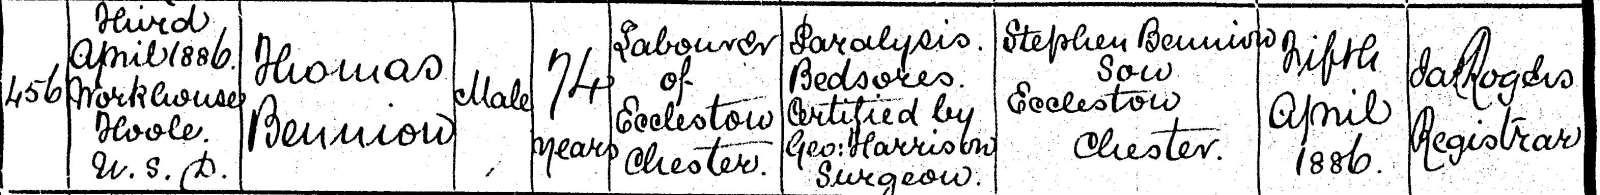 456
Third
April 1886.
Workhouse
Hoole.
U. S. D.
Thomas
Bennion
Male
74
years
Labourer
of
Eccleston
Chester.
Paralysis.
Bedsores.
Certified by
Geo: Harrison
Surgeon.
Stephen Bennion
Son
Eccleston
Chester.
Fifth
April
1886.
Rogers
Registrar